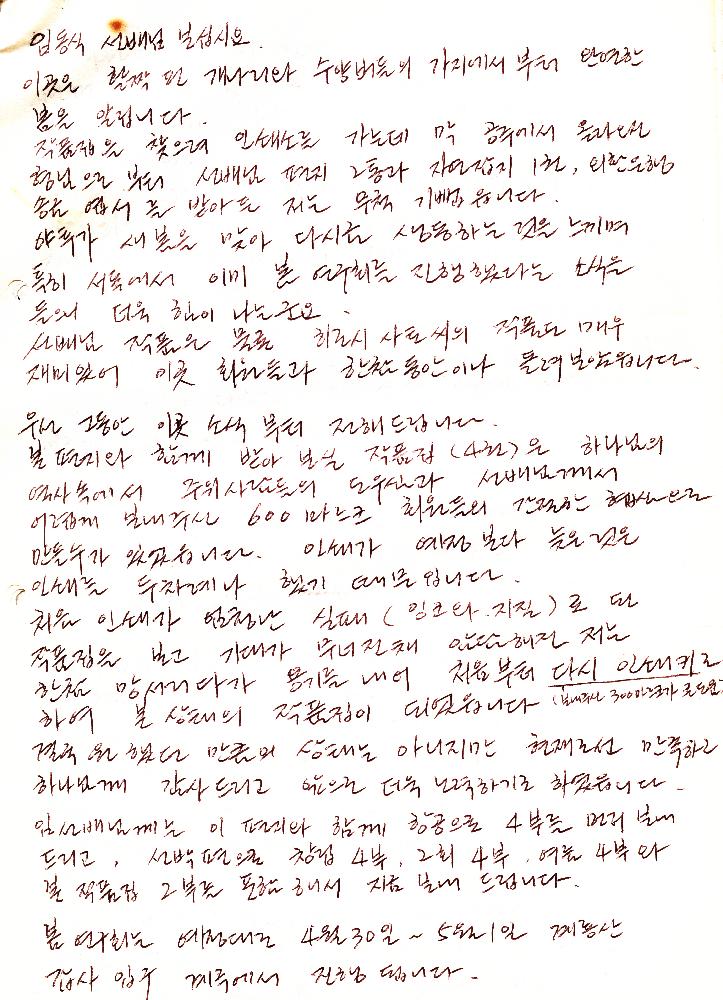 임동식 선배님 보십시요.
이곳은 활짝 핀 개나리와 수양버들의 가지에서부터 완연한
봄을 알립니다.
작품집을 찾으려 인쇄소를 가는데 막 공주에서 올라오신
형님으로부터 선배님 편지 2통과 자연잡지 1권, 외환은행
송금 엽서를 받아든 저는 무척 기뻤습니다.
야투가 새봄을 맞아 다시금 생동하는 것을 느끼며
특히 서독에서 이미 봄 연구회를 진행했다는 소식을
들으니 더욱 힘이 나는군요.
선배님 작품은 물론 히로시 사토씨의 작품도 매우
재미있어 이곳 회원들과 한참동안이나 돌려보았습니다.
우선 그동안 이곳 소식부터 전해드립니다.
본 편지와 함께 받아 보실 작품집(4권)은 하나님의
역사속에서 주위사람들의 도우심과 선배님께서
어렵게 보내주신 600마르크 회원들의 간절한 협심으로
만들수가 있었습니다. 인쇄가 예정보다 늦은것은
인쇄를 두차례나 했기 때문입니다.
처음 인쇄가 엄청난 실패(잉크와 지질)로 된
작품집을 보고 기대가 무너진채 암담해진 저는
한참 망서리다가 용기를 내어 처음부터 다시 인쇄키로
하여 본 상태의 작품집이 되었습니다 (보내주신 300마르크가 큰도움)
결국 원했던 만큼의 상태는 아니지만 현재로선 만족하고
하나님께 감사드리고 앞으로 더욱 노력하기로 하였습니다.
임선배님께는 이 편지와 함께 항공으로 4부를 먼저 보내
드리고, 선박편으로 창립 4부, 2회 4부, 여름 4부와
본 작품집 2부를 포함해서 지금 보내 드립니다.
봄 연구회는 예정대로 4월30일~5월1일 계룡산
갑사 입구 계곡에서 진행 됩니다.